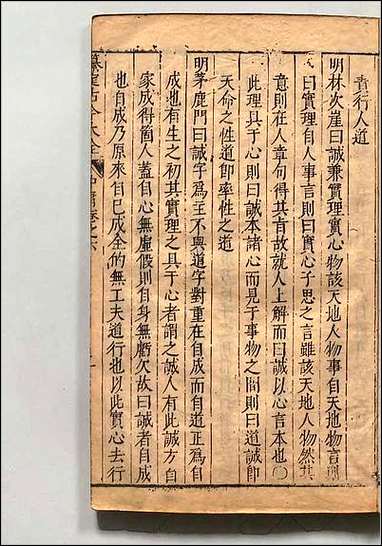 責行人道
明林次崖曰誠兼實理實心物該天地人物事自天地物言則
曰實理自人事言則曰實心子思之言雖該天地人物然其
意則在人章句得其旨故就人上解而曰誠以心言本也〇
此理具于心則曰誠本諸心而見于事物之間則曰道誠即
天命之性道即率性之道
明茅鹿門曰誠字爲主不與道字對重在自成而自道正爲自
成也有生之初其實理之具于心者謂之誠人有此誠方自
家成得箇人蓋自心無虛假則自身無虧欠故曰誠者自成
也自成乃原來自己成全的無工夫道行也以此實心去行
古今大全 中庸卷之六